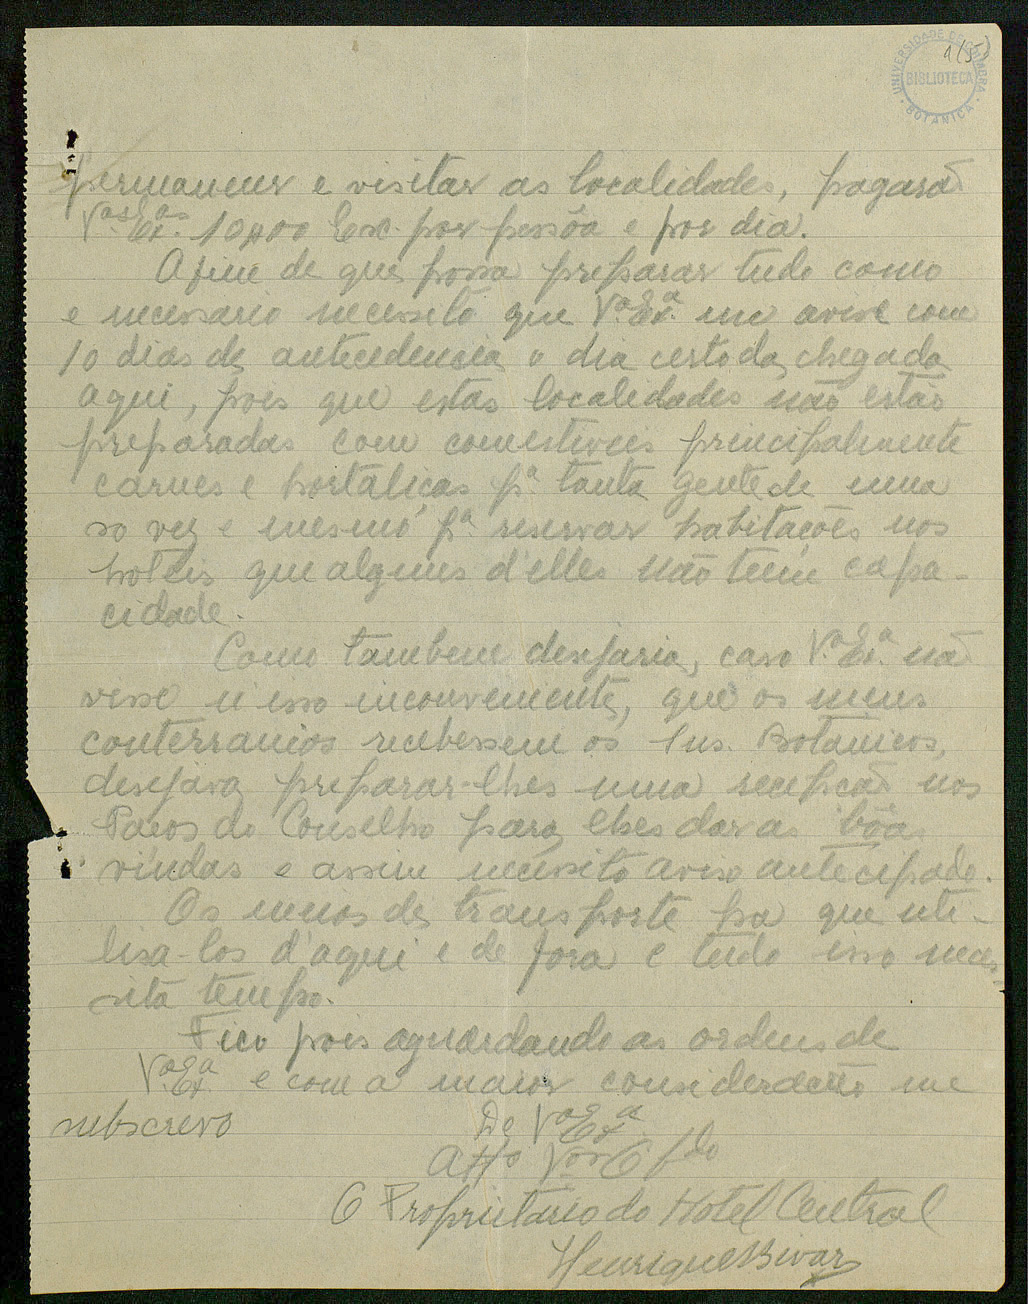 UNIVERSIDADE DE COIMBRA
BIBLIOTECA
BOTANICA
permanecer e visitar as localidades, pagarão
V.as Ex.as 10$00 Esc. por pessôa e por dia.
Afim de que possa preparar tudo como
e necessario necessito que V.a Ex.a me avise com
10 dias de antecedencia o dia certo da chegada
aqui, pois que estas localidades não estão
preparadas com comestiveis principalmente
carnes e hortaliças p.a tanta gente de uma
so vez e mesmo p.a reservar habitações nos
hoteis que alguns d'elles não teem capa-
cidade.
Como tambem desejaria, caso V.a Ex.a não
visse n'isso inconveniente, que os meus
conterraneos recebessem os Sns. Botanicos,
desejava preparar-lhes uma recepção nos
Paços do Conselho para lhes dar as bôas
vindas e assim necessito aviso antecipado.
Os meios de transporte ha que uti-
lisa-los d'aqui e de fora e tudo isso neces
sita tempo.
Fico pois aguardando as ordens de
V.a Ex.a e com a maior consideração me
subscrevo
De V.a Ex.a
Att.o V.or
O Proprietario do Hotel Central
Henrique Bivar